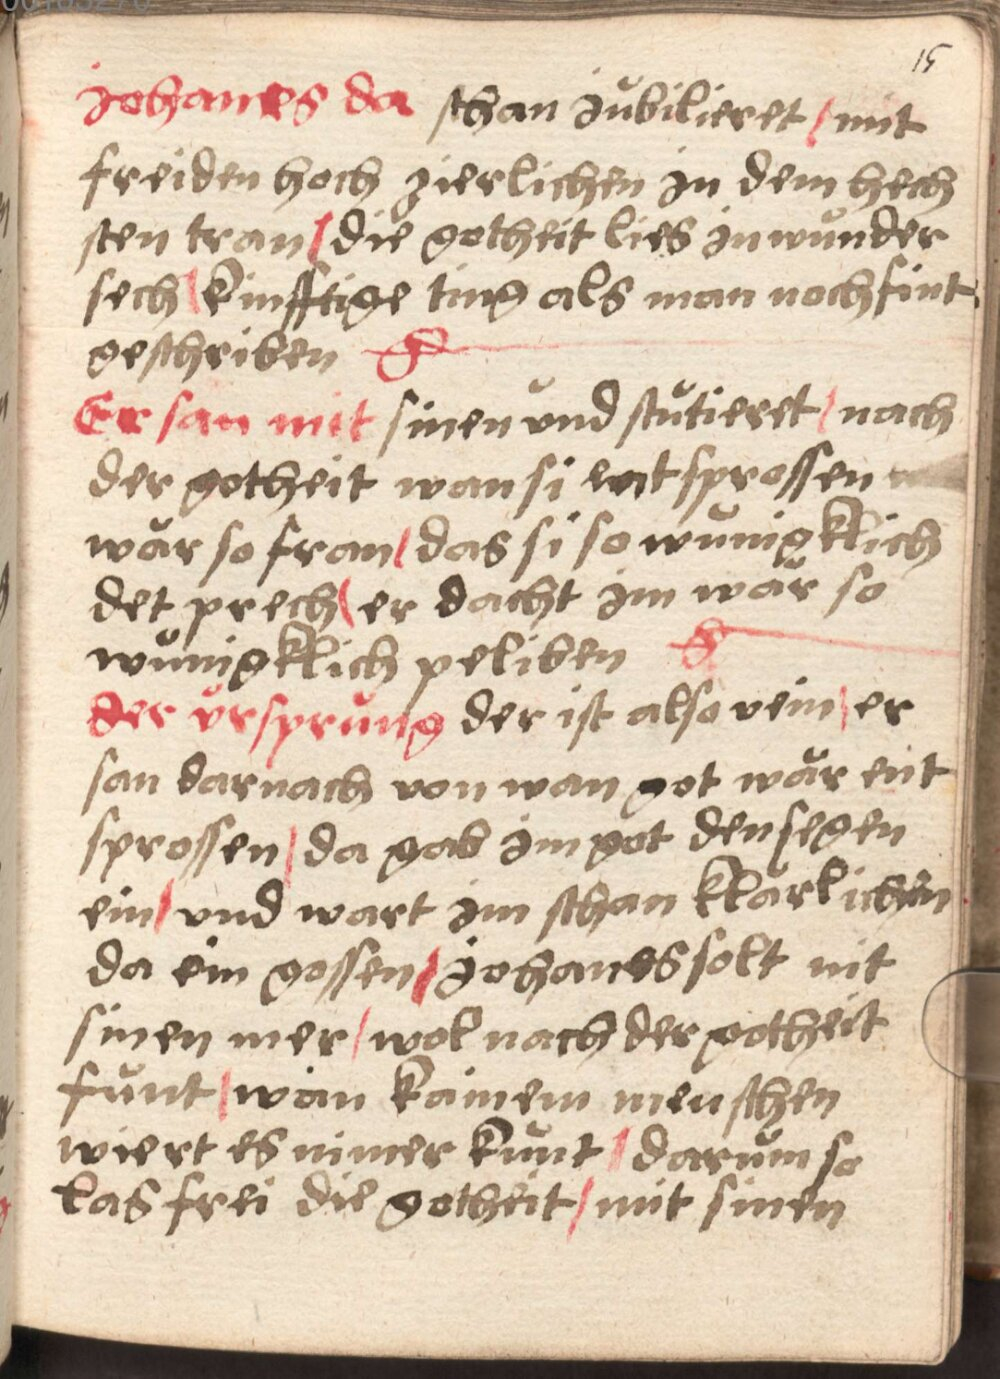 00103270
15
johanes da schan jubilieret / mit
freiden hoch zierlichen jn dem hech
sten tran / die gotheit lies jn wunder
sech / kinfftige ting als man noch fint
geschriben
Er san mit sinen vnd stutieret / nach
der gotheit wan si wit sprossen
wär so fran / das si so wunigklich
det prech / er dacht jm wär so
wunigklich peliben
der vrsprung der ist also rein / er
san darnach von wan got wär ent
sprossen / da gab jm got den segen
ein / vnd wart jm schan klärlichen
da ein gossen / johanes solt nit
sinen mer / wol nach der gotheit
funt / wan kainem menschen
wiert es nimer kunt / darum so
las frei die gotheit / mit sinen